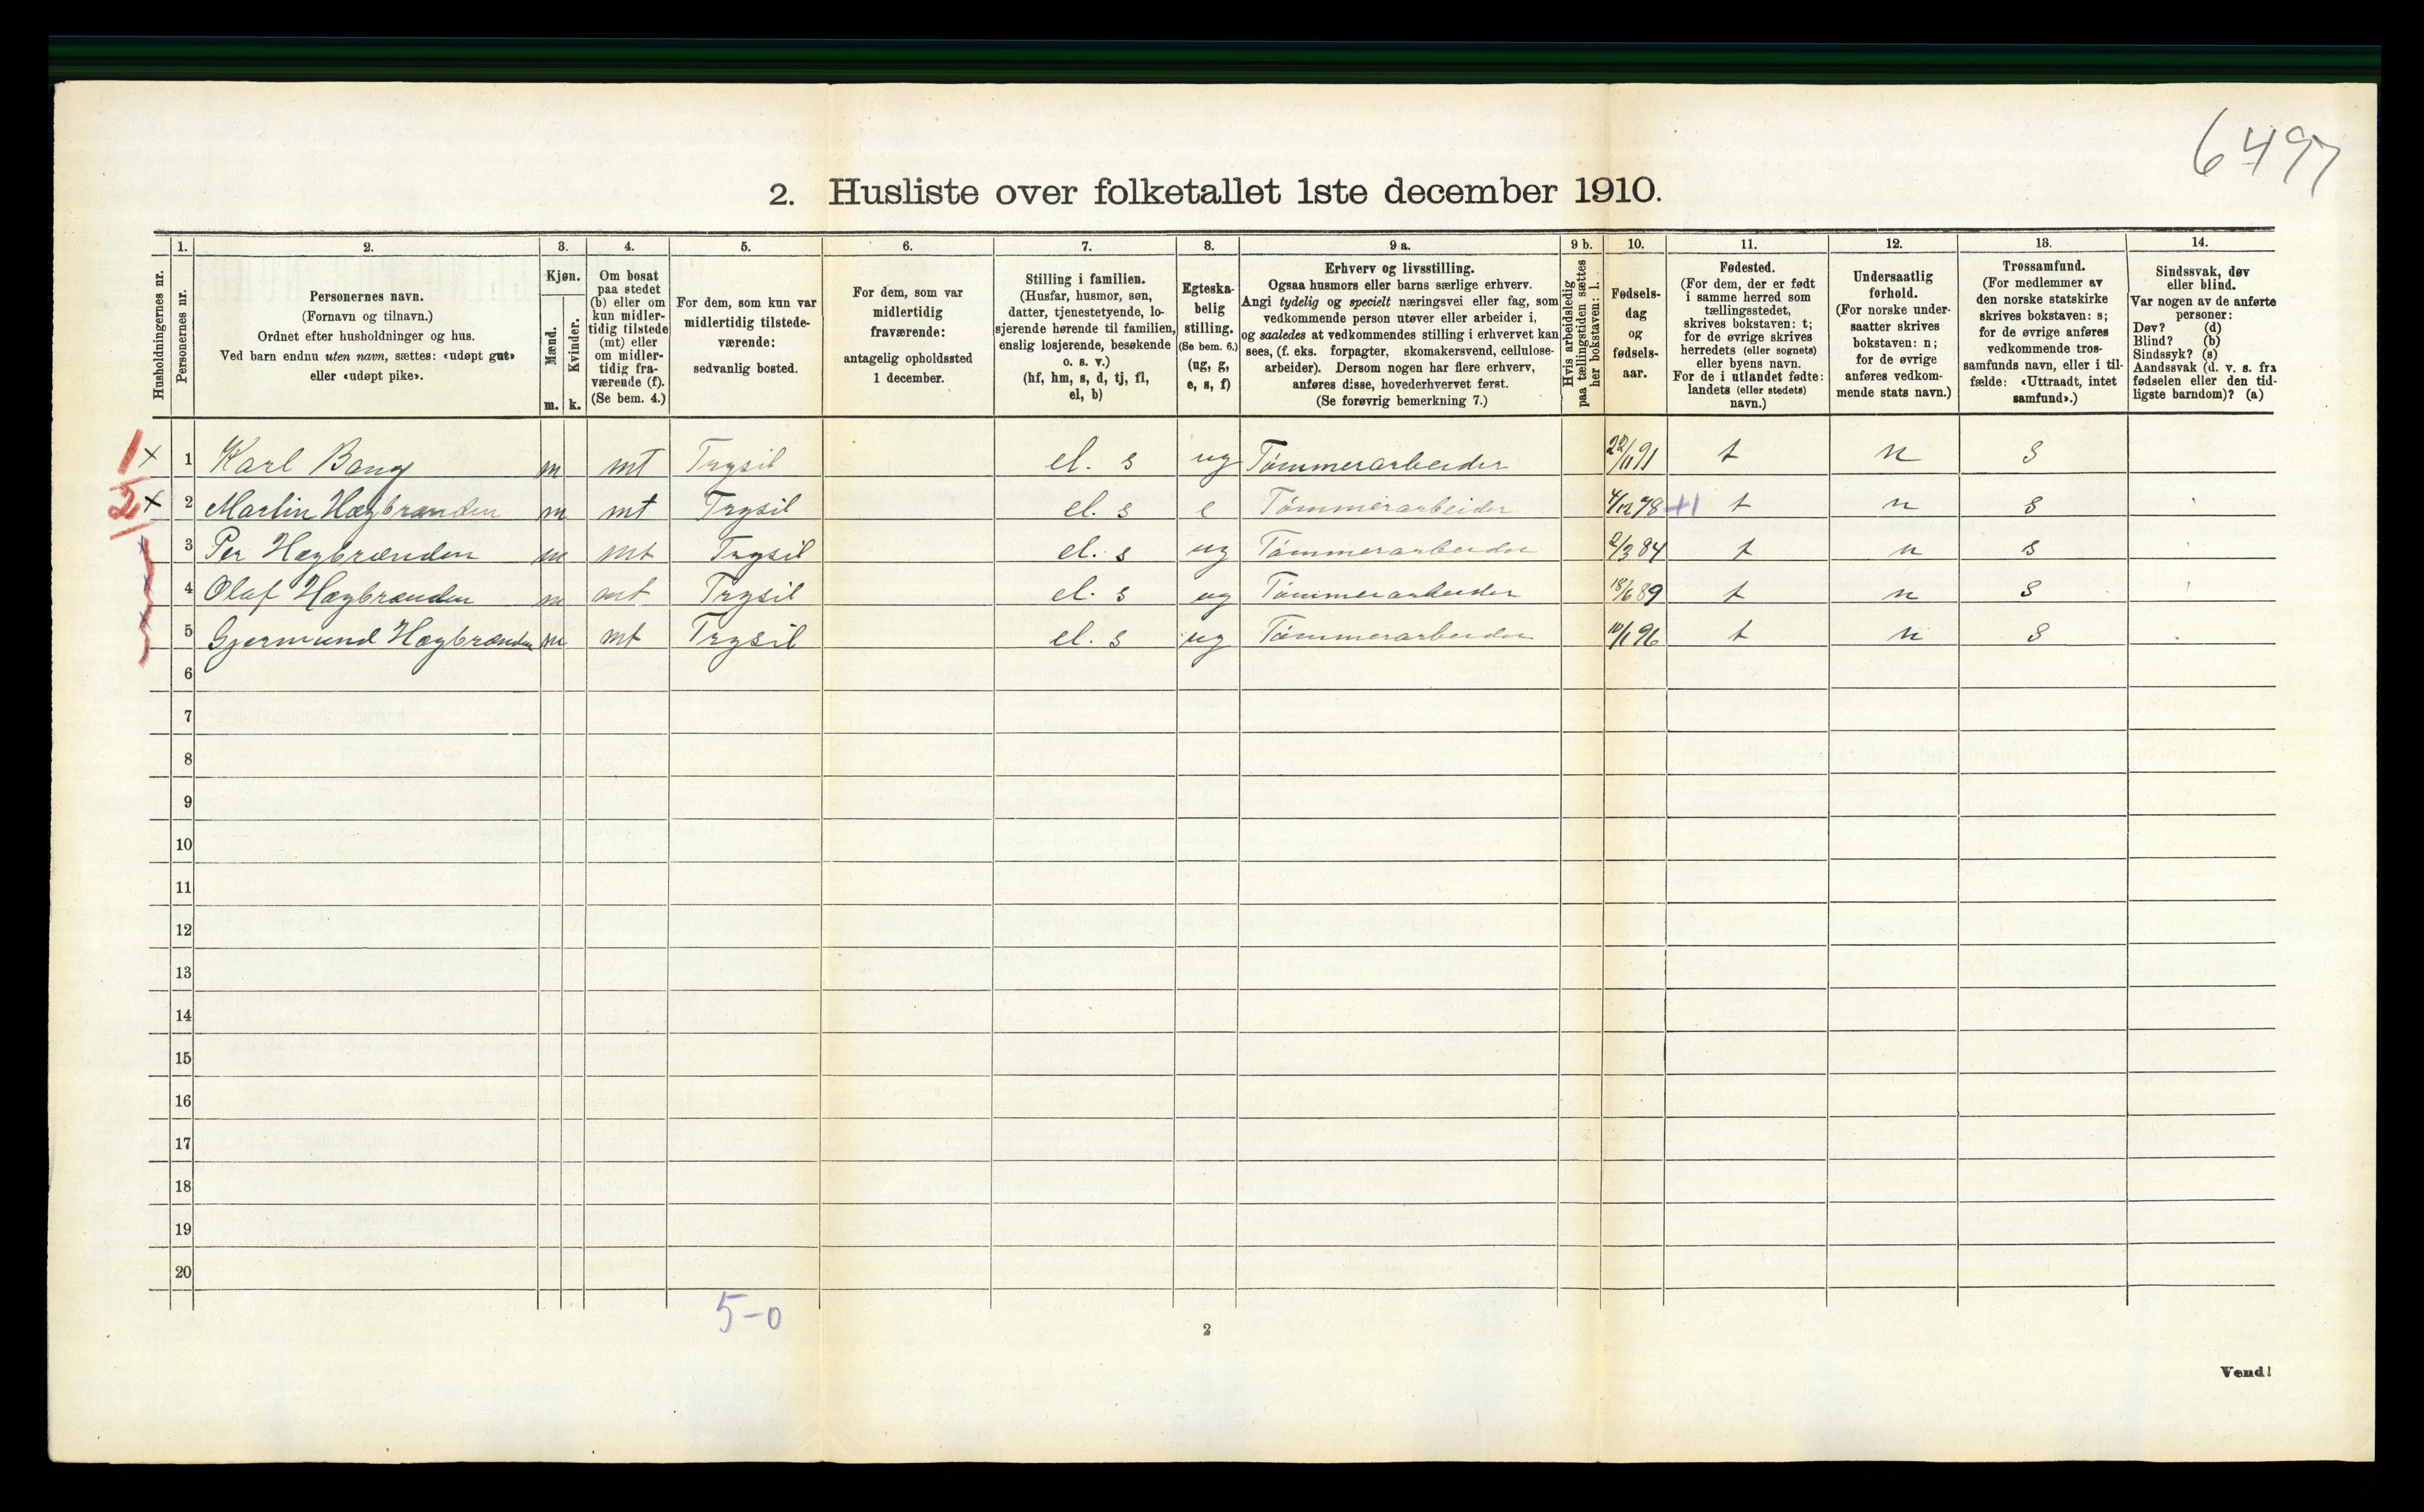 6497
2. Husliste over folketallet 1ste december 1910.
Husholdningernes nr.
1.
Personernes nr.
2.
Personernes navn.
(Fornavn og tilnavn.)
Ordnet efter husholdninger og hus.
Ved barn endnu uten navn, sættes: «udøpt gut»
eller «udøpt pike».
3.
Kjøn.
Mænd.
Kvinder.
m. k.
4.
Om bosat
paa stedet
(b) eller om
kun midler-
tidig tilstede
(mt) eller
om midler-
tidig fra-
værende (f).
(Se bem. 4.)
5.
For dem, som kun var
midlertidig tilstede-
værende:
sedvanlig bosted.
6.
For dem, som var
midlertidig
fraværende:
antagelig opholdssted
1 december.
7.
Stilling i familien.
(Husfar, husmor, søn,
datter, tjenestetyende, lo-
sjerende hørende til familien,
enslig losjerende, besøkende
o. s. v.)
(hf, hm, s, d, tj, fl,
el, b)
8.
Egteska-
belig
stilling.
(Se bem. 6.)
(ug, g,
e, s, f)
9 a.
Erhverv og livsstilling.
Ogsaa husmors eller barns særlige erhverv.
Angi tydelig og specielt næringsvei eller fag, som
vedkommende person utøver eller arbeider i,
og saaledes at vedkommendes stilling i erhvervet kan
sees, (f. eks. forpagter, skomakersvend, cellulose-
arbeider). Dersom nogen har flere erhverv,
anføres disse, hovederhvervet først.
(Se forøvrig bemerkning 7.)
9 b.
Hvis arbeidsledig
paa tællingstiden sættes
her bokstaven: l.
10.
Fødsels-
dag
og
fødsels-
aar.
11.
Fødested.
(For dem, der er født
i samme herred som
tællingsstedet,
skrives bokstaven: t;
for de øvrige skrives
herredets (eller sognets)
eller byens navn.
For de i utlandet fødte:
landets (eller stedets)
navn.)
12.
Undersaatlig
forhold.
(For norske under-
saatter skrives
bokstaven: n;
for de øvrige
anføres vedkom-
mende stats navn.)
13.
Trossamfund.
(For medlemmer av
den norske statskirke
skrives bokstaven: s;
for de øvrige anføres
vedkommende tros-
samfunds navn, eller i til-
fælde: «Uttraadt, intet
samfund».)
14.
Sindssvak, døv
eller blind.
Var nogen av de anførte
personer:
Døv? (d)
Blind? (b)
Sindssyk? (s)
Aandssvak (d. v. s. fra
fødselen eller den tid-
ligste barndom)? (a)
1 x 1 Karl Bang m mt Trysil el. s ug Tømmerarbeider 22/11 91 t n s
2 x 2 Martin Hægbrænden m mt Trysil el. s e Tømmerarbeider 4/12 78 +1 t n s
3 Per Hægbrænden m mt Trysil el. s ug Tømmerarbeider 2/3 84 t n s
4 Olaf Hægbrænden m mt Trysil el. s ug Tømmerarbeider 18/6 89 t n s
5 Gjermund Hægbrænden m mt Trysil el. s ug Tømmerarbeider 10/1 96 t n s
6
7
8
9
10
11
12
13
14
15
16
17
18
19
20
5-0
2
Vend!